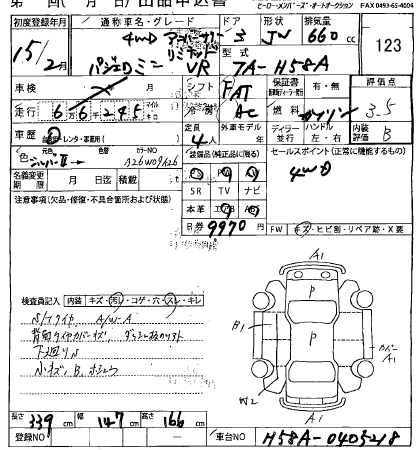 第 回( 月 日) 出品申込書 ヒーロー・メンバーズ・オートオークション FAX 0493-65-4004
初度登録年月 通称車名・グレード ドア 形状 排気量
15/2月 パジェロミニ 4WD リミテッド VR 3 JW 660cc 123
型式 TA-H58A
車検 シフト FAT 保証書 有・無 評価点 3.5
走行 6万6千245 マイル キロ 冷房 AC 燃料 ガソリン
車歴 自家・レンタ・事業用( ) 定員 4人 外車モデル 年 ディラー 並行 ハンドル 左・右 内装評価 B
色 シルバーII 元色 色替 カラーNO A26W09A26
装備品(純正品に限る) セールスポイント(正常に機能するもの)
名義変更期限 月 日迄 積載 4WD
SR TV ナビ
注意事項(欠品・修復・不具合箇所および状態)
本革
R券 9970円
FW キズ・ヒビ割・リペア跡・X要
検査員記入 内装 キズ・汚レ・コゲ・穴・スレ・キレ
A1
P
P
B1
カバーA1
W2
A1
N/Tタイヤ A/W-A
背面タイヤカバーキズ
下廻りN
小キズ、B、
長さ 339 cm 幅 147 cm 高さ 166 cm
登録NO — 車台NO H58A-0405218